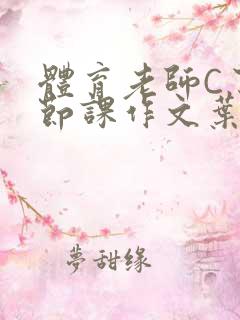 體育老師C
節課作文葉
夢甜缘